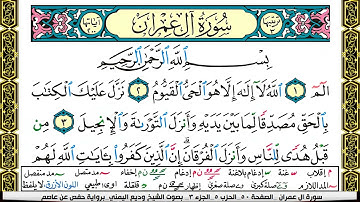 سورة آل عمران
بسم الله الرحمن الرحيم
الم ١ الله لا إله إلا هو الحي القيوم ٢ نزل عليك الكتاب
بالحق مصدقا لما بين يديه وأنزل التورىة والإنجيل ٣ من
قبل هدى للناس وأنزل الفرقان إن الذين كفروا بـٔايات الله لهم
سورة آل عمران . الصفحة ٥٠ . الحزب ٥ . الجزء ٣ . بصوت الشيخ وديع اليمني . برواية حفص عن عاصم